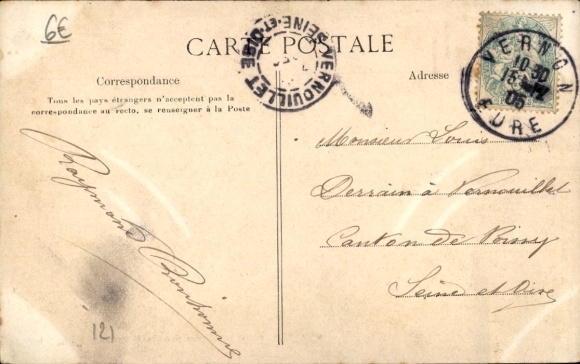 6€
CARTE POSTALE
VERNOUILLET
SEINE-ET-OISE
VERNON
10 30
05
EURE
Correspondance
Adresse
Tous les pays étrangers n'acceptent pas la
correspondance au recto, se renseigner à la Poste
Monsieur Louis
Derrain à Vernouillet
Canton de Poissy
Seine et Oise
Raymond
121